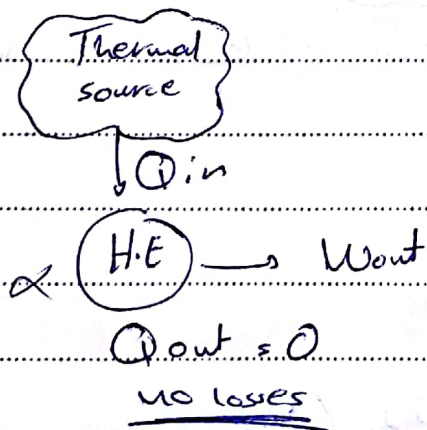 Thermal
source
Qin
∝ H.E → Wout
Qout = 0
no losses